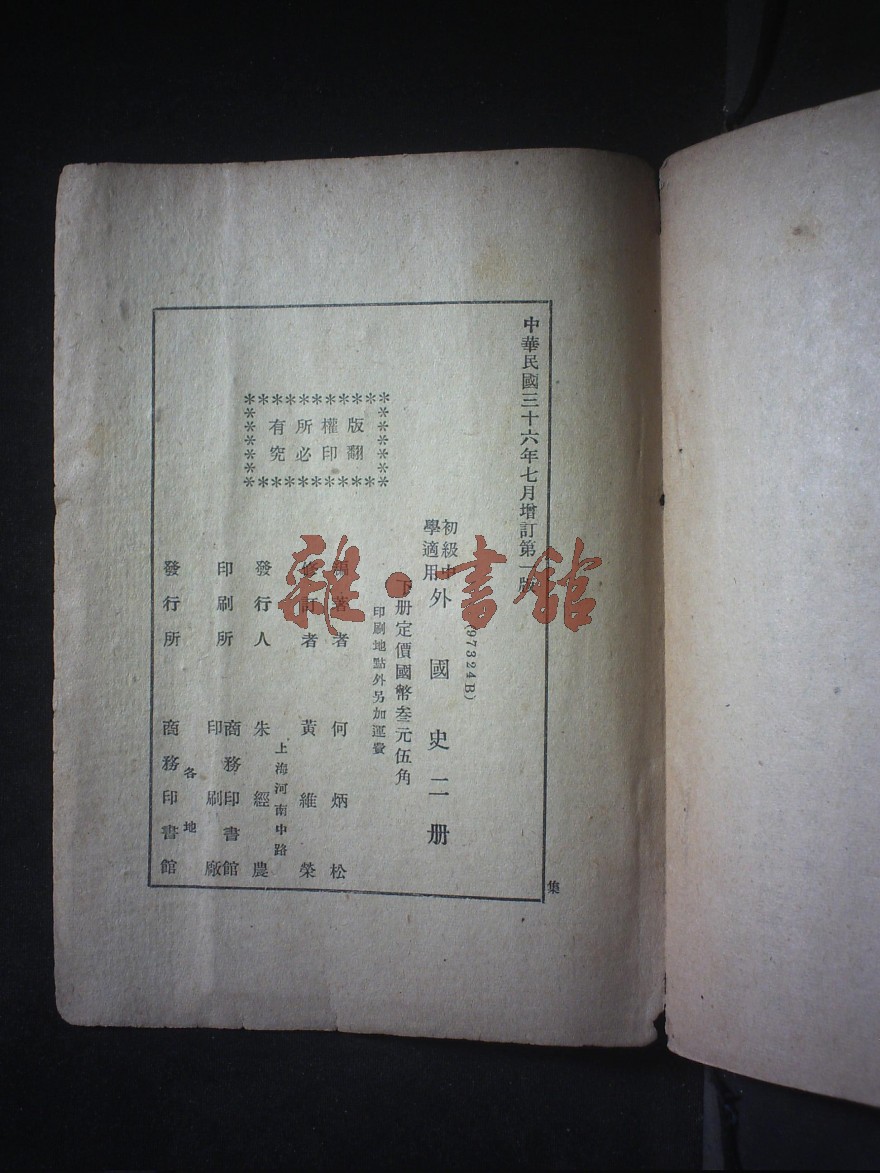 中華民國三十六年七月增訂第一版
(97324B)
初級中
學適用
外國史二册
下册定價國幣叁元伍角
印刷地點外另加運費
版權所有
翻印必究
編著者 何炳松
修訂者 黃維榮
上海河南中路
發行人 朱經農
印刷所 商務印書館
印刷廠
各地
發行所 商務印書館
集
雜·書館